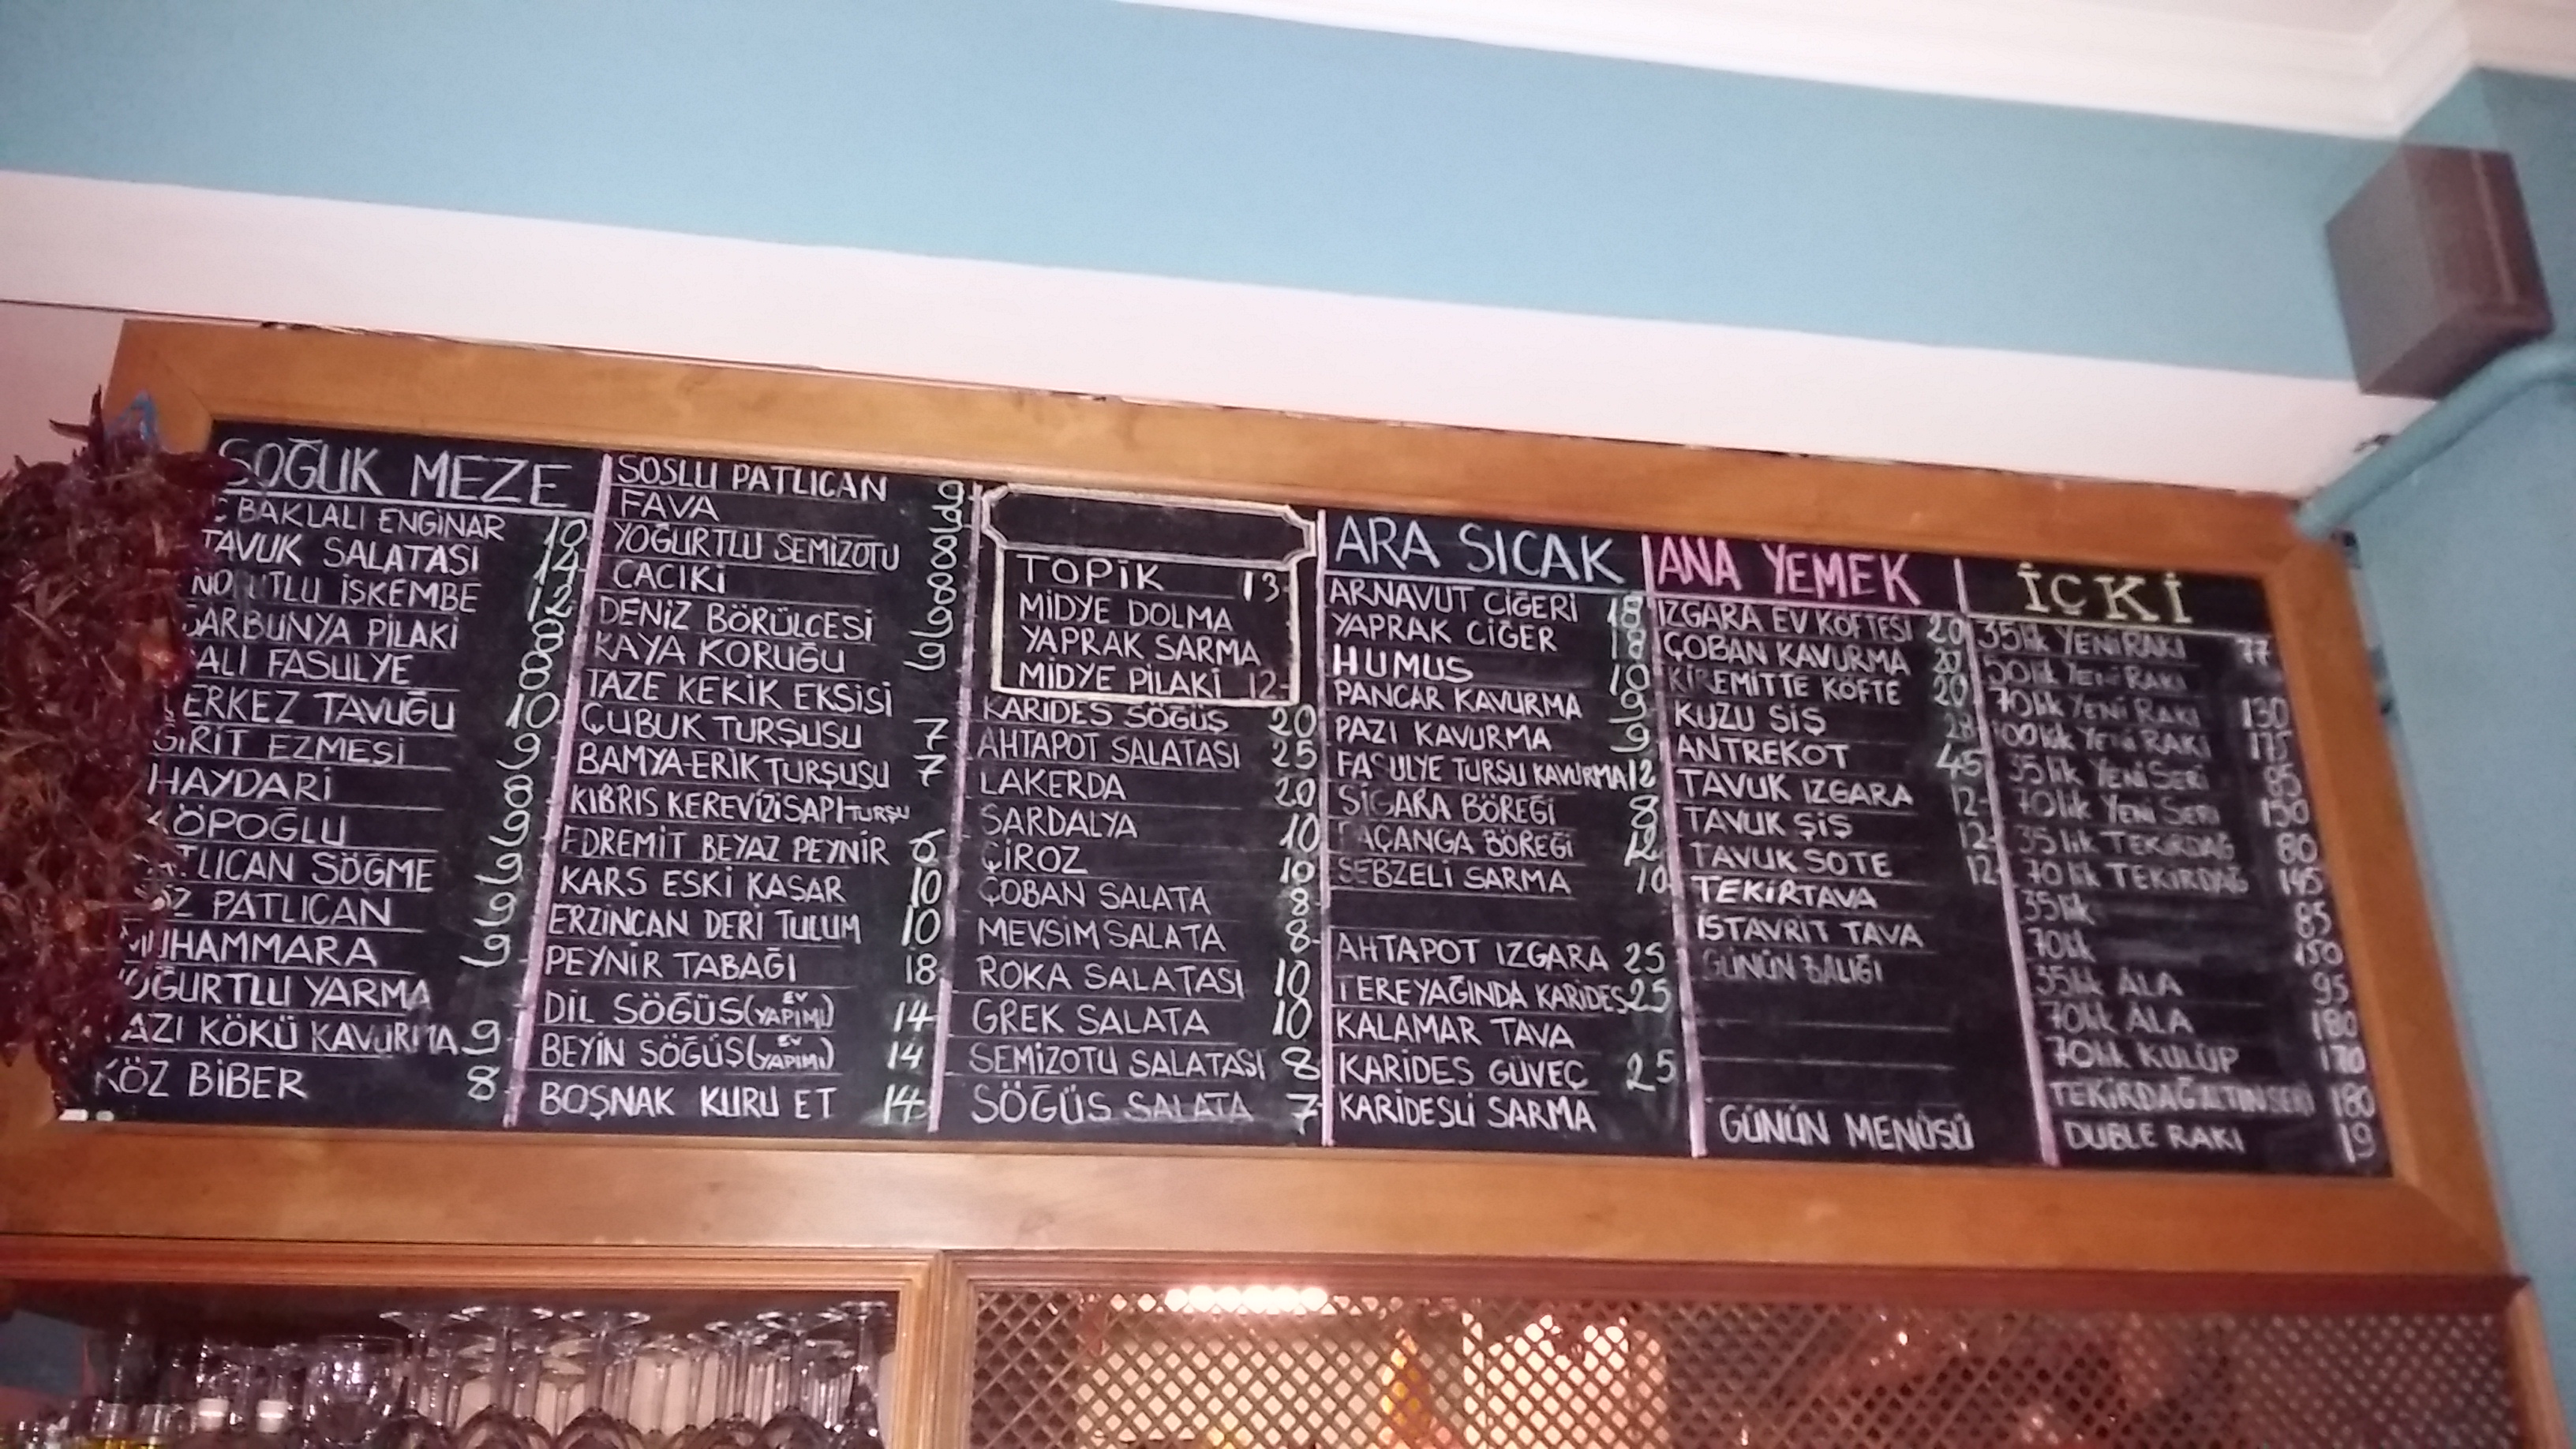 SOĞUK MEZE
İÇ BAKLALI ENGİNAR 10
TAVUK SALATASI 14
NOHUTLU İŞKEMBE 12
BARBUNYA PİLAKİ 8
FASULYE 8
ÇERKEZ TAVUĞU 10
GİRİT EZMESİ 9
HAYDARİ 8
KÖPOĞLU 9
PATLICAN SÖĞME 9
KÖZ PATLICAN 9
MUHAMMARA 9
YOĞURTLU YARMA
PAZI KÖKÜ KAVURMA 9
KÖZ BİBER 8
SOSLU PATLICAN 9
FAVA
YOĞURTLU SEMİZOTU 8
CACIKİ 8
DENİZ BÖRÜLCESİ 9
KAYA KORUĞU 9
TAZE KEKİK EKSİSİ
ÇUBUK TURŞUSU 7
BAMYA-ERİK TURŞUSU 7
KIBRIS KEREVİZİ SAPI TURŞU
EDREMİT BEYAZ PEYNİR
KARS ESKİ KAŞAR 10
ERZİNCAN DERİ TULUM 10
PEYNİR TABAĞI 18
DİL SÖĞÜŞ (EV YAPIMI) 14
BEYİN SÖĞÜŞ (EV YAPIMI) 14
BOŞNAK KURU ET 14
TOPİK 13
MİDYE DOLMA
YAPRAK SARMA
MİDYE PİLAKİ 12
KARİDES SÖĞÜŞ 20
AHTAPOT SALATASI 25
LAKERDA 20
SARDALYA 10
ÇİROZ 10
ÇOBAN SALATA 8
MEVSİM SALATA 8
ROKA SALATASI 10
GREK SALATA 10
SEMİZOTU SALATASI 8
SÖĞÜŞ SALATA 7
ARA SICAK
ARNAVUT CİĞERİ 18
YAPRAK CİĞER 18
HUMUS 10
PANCAR KAVURMA 9
PAZI KAVURMA 9
FASULYE TURŞU KAVURMA 12
SİGARA BÖREĞİ 8
PAÇANGA BÖREĞİ 12
SEBZELİ SARMA 10
AHTAPOT IZGARA 25
TEREYAĞINDA KARİDES 25
KALAMAR TAVA
KARİDES GÜVEÇ 25
KARİDESLİ SARMA
ANA YEMEK
IZGARA EV KÖFTESİ 20
ÇOBAN KAVURMA 20
KİREMİTTE KÖFTE 20
KUZU ŞİŞ 28
ANTREKOT 45
TAVUK IZGARA 12
TAVUK ŞİŞ 12
TAVUK SOTE 12
TEKİR TAVA
İSTAVRİT TAVA
GÜNÜN BALIĞI
GÜNÜN MENÜSÜ
İÇKİ
35lik YENİ RAKI 77
50lik YENİ RAKI
70lik YENİ RAKI 130
100lük YENİ RAKI 175
35lik YENİ SERİ 85
70lik YENİ SERİ 150
35lik TEKİRDAĞ 80
70lik TEKİRDAĞ 145
35lik 85
70lik 150
35lik ALA 95
70lik ALA 180
70lik KULÜP 170
TEKİRDAĞ ALTIN SERİ 180
DUBLE RAKI 19